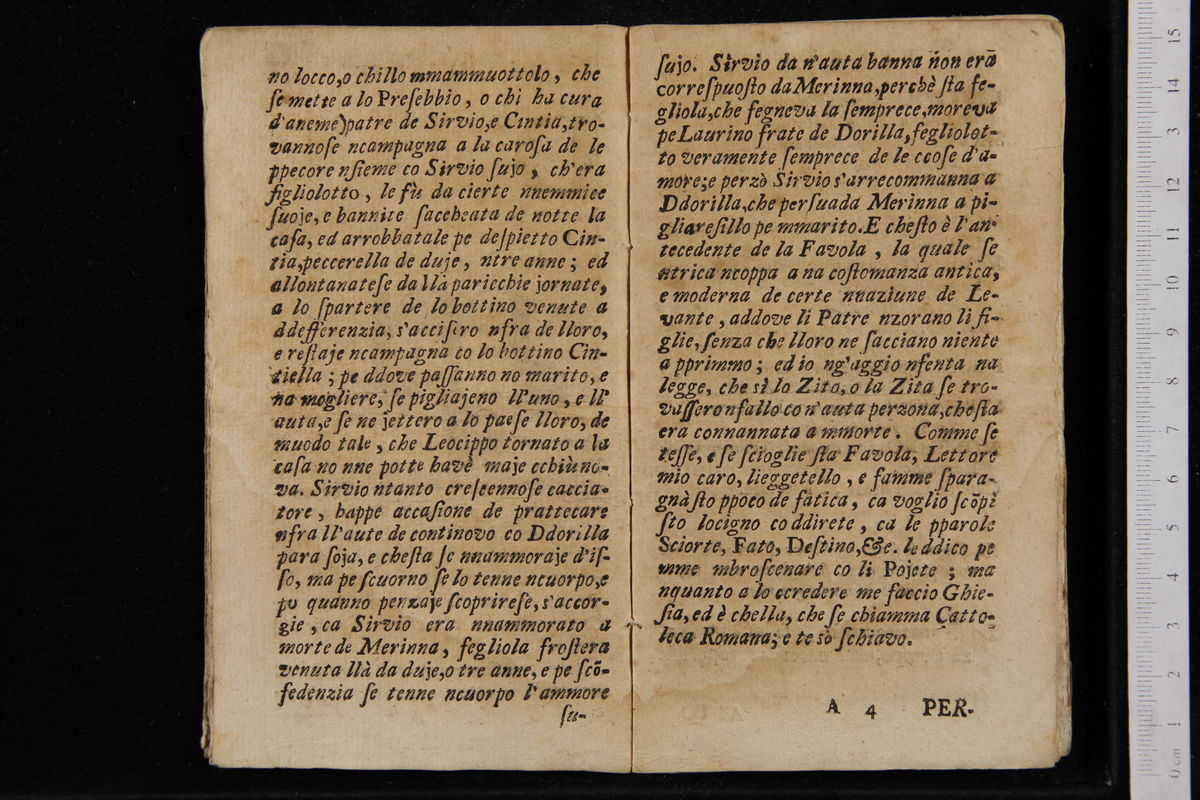 no locco, o chillo mmammuottolo, che
ſe mette a lo Preſebbio, o chi ha cura
d'aneme) patre de Sirvio, e Cintia, tro-
vannoſe ncampagna a la caroſa de le
ppecore nſieme co Sirvio ſujo, ch'era
figliolotto, le fù da cierte nnemmice
ſuoje, e bannite ſaccheata de notte la
caſa, ed arrobbatale pe deſpietto Cin-
tia, peccerella de duje, ntre anne; ed
allontanateſe da llà paricchie jornate,
a lo ſpartere de lo bottino venute a
ddefferenzia, s'acciſero nfra de lloro,
e reſtaje ncampagna co lo bottino Cin-
tiella; pe ddove paſſanno no marito, e
na mogliere, ſe pigliajeno ll'uno, e ll'
auta, e ſe ne jettero a lo paeſe lloro, de
muodo tale, che Leocippo tornato a la
caſa no nne potte havè maje cchiù no-
va. Sirvio ntanto creſcennoſe caccia-
tore, happe accaſione de prattecare
nfra ll'aute de continovo co Ddorilla
para ſoja, e cheſta ſe nnammoraje d'iſ-
ſo, ma pe ſcuorno ſe lo tenne ncuorpo, e
po quanno penzaje ſcoprireſe, s'accor-
gie, ca Sirvio era nnammorato a
morte de Merinna, fegliola froſtera
venuta llà da duje, o tre anne, e pe ſcō-
fedenzia ſe tenne ncuorpo l'ammore
ſu-
ſujo. Sirvio da n'auta banna non erā
correſpuoſto da Merinna, perchè ſta fe-
gliola, che fegneva la ſemprece, moreva
pe Laurino frate de Dorilla, fegliolot-
to veramente ſemprece de le ccoſe d'a-
more; e perzò Sirvio s'arrecommanna a
Ddorilla, che perſuada Merinna a pi-
gliareſillo pe mmarito. E cheſto è l'an-
tecedente de la Favola, la quale ſe
ntrica ncoppa a na coſtomanza antica,
e moderna de certe nnaziune de Le-
vante, addove li Patre nzorano li fi-
glie, ſenza che lloro ne ſacciano niente
a pprimmo; ed io ng'aggio nfenta na
legge, che sì lo Zito, o la Zita ſe tro-
vaſſero nfallo co n'auta perzona, che ſta
era connannata a mmorte. Comme ſe
teſſe, e ſe ſcioglie ſta Favola, Lettore
mio caro, lieggetello, e famme ſpara-
gnà ſto ppoco de fatica, ca voglio ſcōpì
ſto locigno co ddirete, ca le pparole
Sciorte, Fato, Deſtino, &c. le ddico pe
mme mbroſcenare co li Pojete; ma
nquanto a lo ccredere me faccio Ghie-
ſia, ed è chella, che ſe chiamma Catto-
leca Romana; e te sò ſchiavo.
A 4 PER-
0 cm 1 2 3 4 5 6 7 8 9 10 11 12 3 14 15